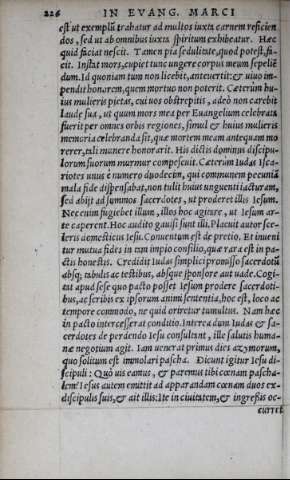 226 IN EVANG. MARCI
est ut exemplū trahatur ad multos iuxta carnem reficien
dos, sed ut ab omnibus iuxta spiritum exhibeatur. Hæc
quid faciat nescit. Tamen pia sedulitate, quod potest, fa-
cit. Instat mors, cupiet tunc ungere corpus meum sepeliē
dum. Id quoniam tum non licebit, anteuertit: & uiuo im-
pendit honorem, quem mortuo non poterit. Cæterùm hu-
ius mulieris pietas, cui uos obstrepitis, adeò non carebit
laude sua, ut quum mors mea per Euangelium celebrata
fuerit per omnes orbis regiones, simul & huius mulieris
memoria celebranda sit, quæ mortem meam antequam mo
rerer, tali munere honorarit. His dictis dominus discipu-
lorum suorum murmur compescuit. Cæterùm Iudas Isca-
riotes unus è numero duodecim, qui communem pecuniā
mala fide dispensabat, non tulit huius unguenti iacturam,
sed abijt ad summos sacerdotes, ut proderet illis Iesum.
Nec enim fugiebat illum, illos hoc agitare, ut Iesum ar-
te caperent. Hoc audito gauisi sunt illi. Placuit autor sce-
leris domesticus Iesu. Conuentum est de precio. Et inueni
tur mutua fides in tam impio consilio, quæ rara est in pa-
ctis honestis. Credidit Iudas simplici promisso sacerdotū
absq; tabulis ac testibus, absque sponsore aut uade. Cogi-
tat apud sese quo pacto posset Iesum prodere sacerdoti-
bus, ac scribis ex ipsorum animi sententia, hoc est, loco ac
tempore commodo, ne quid oriretur tumultus. Nam hæc
in pacto intercesserat conditio. Interea dum Iudas & sa-
cerdotes de perdendo Iesu consultant, ille salutis huma-
næ negotium agit. Iam uenerat primus dies azymorum,
quo solitum est immolari pascha. Dicunt igitur Iesu di-
scipuli: Quò uis eamus, & paremus tibi cœnam pascha-
lem? Iesus autem emittit ad apparandam cœnam duos ex
discipulis suis, & ait illis: Ite in ciuitatem, & ingressis oc-
curret